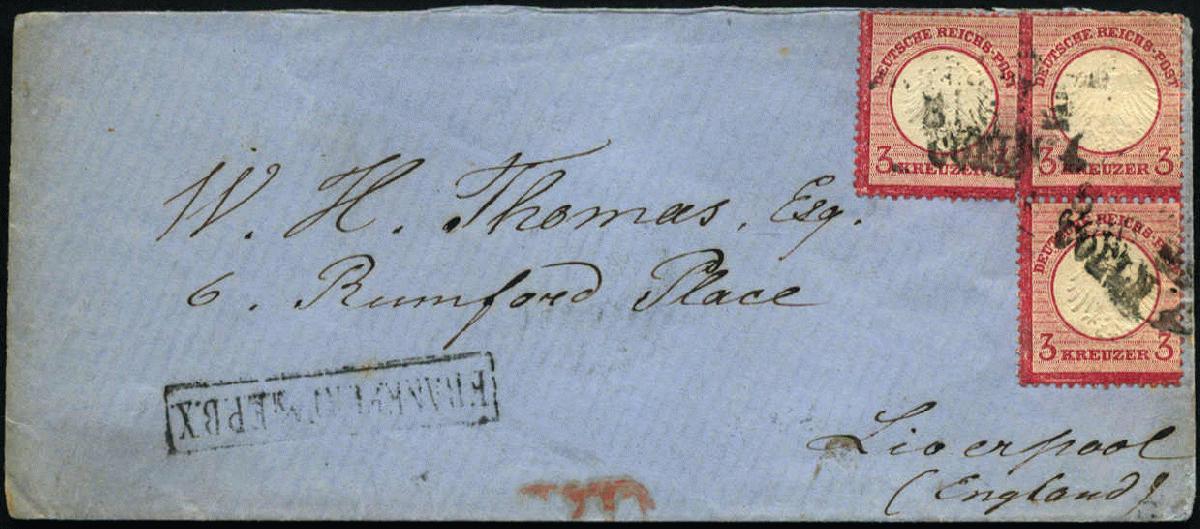 DEUTSCHE REICHS-POST
3 KREUZER
DEUTSCHE REICHS-POST
3 KREUZER 3
DEUTSCHE REICHS-
3 KREUZER 3
COELN
W. H. Thomas, Esq.
6. Rumford Place
FRANKFURT
Liverpool
(England)